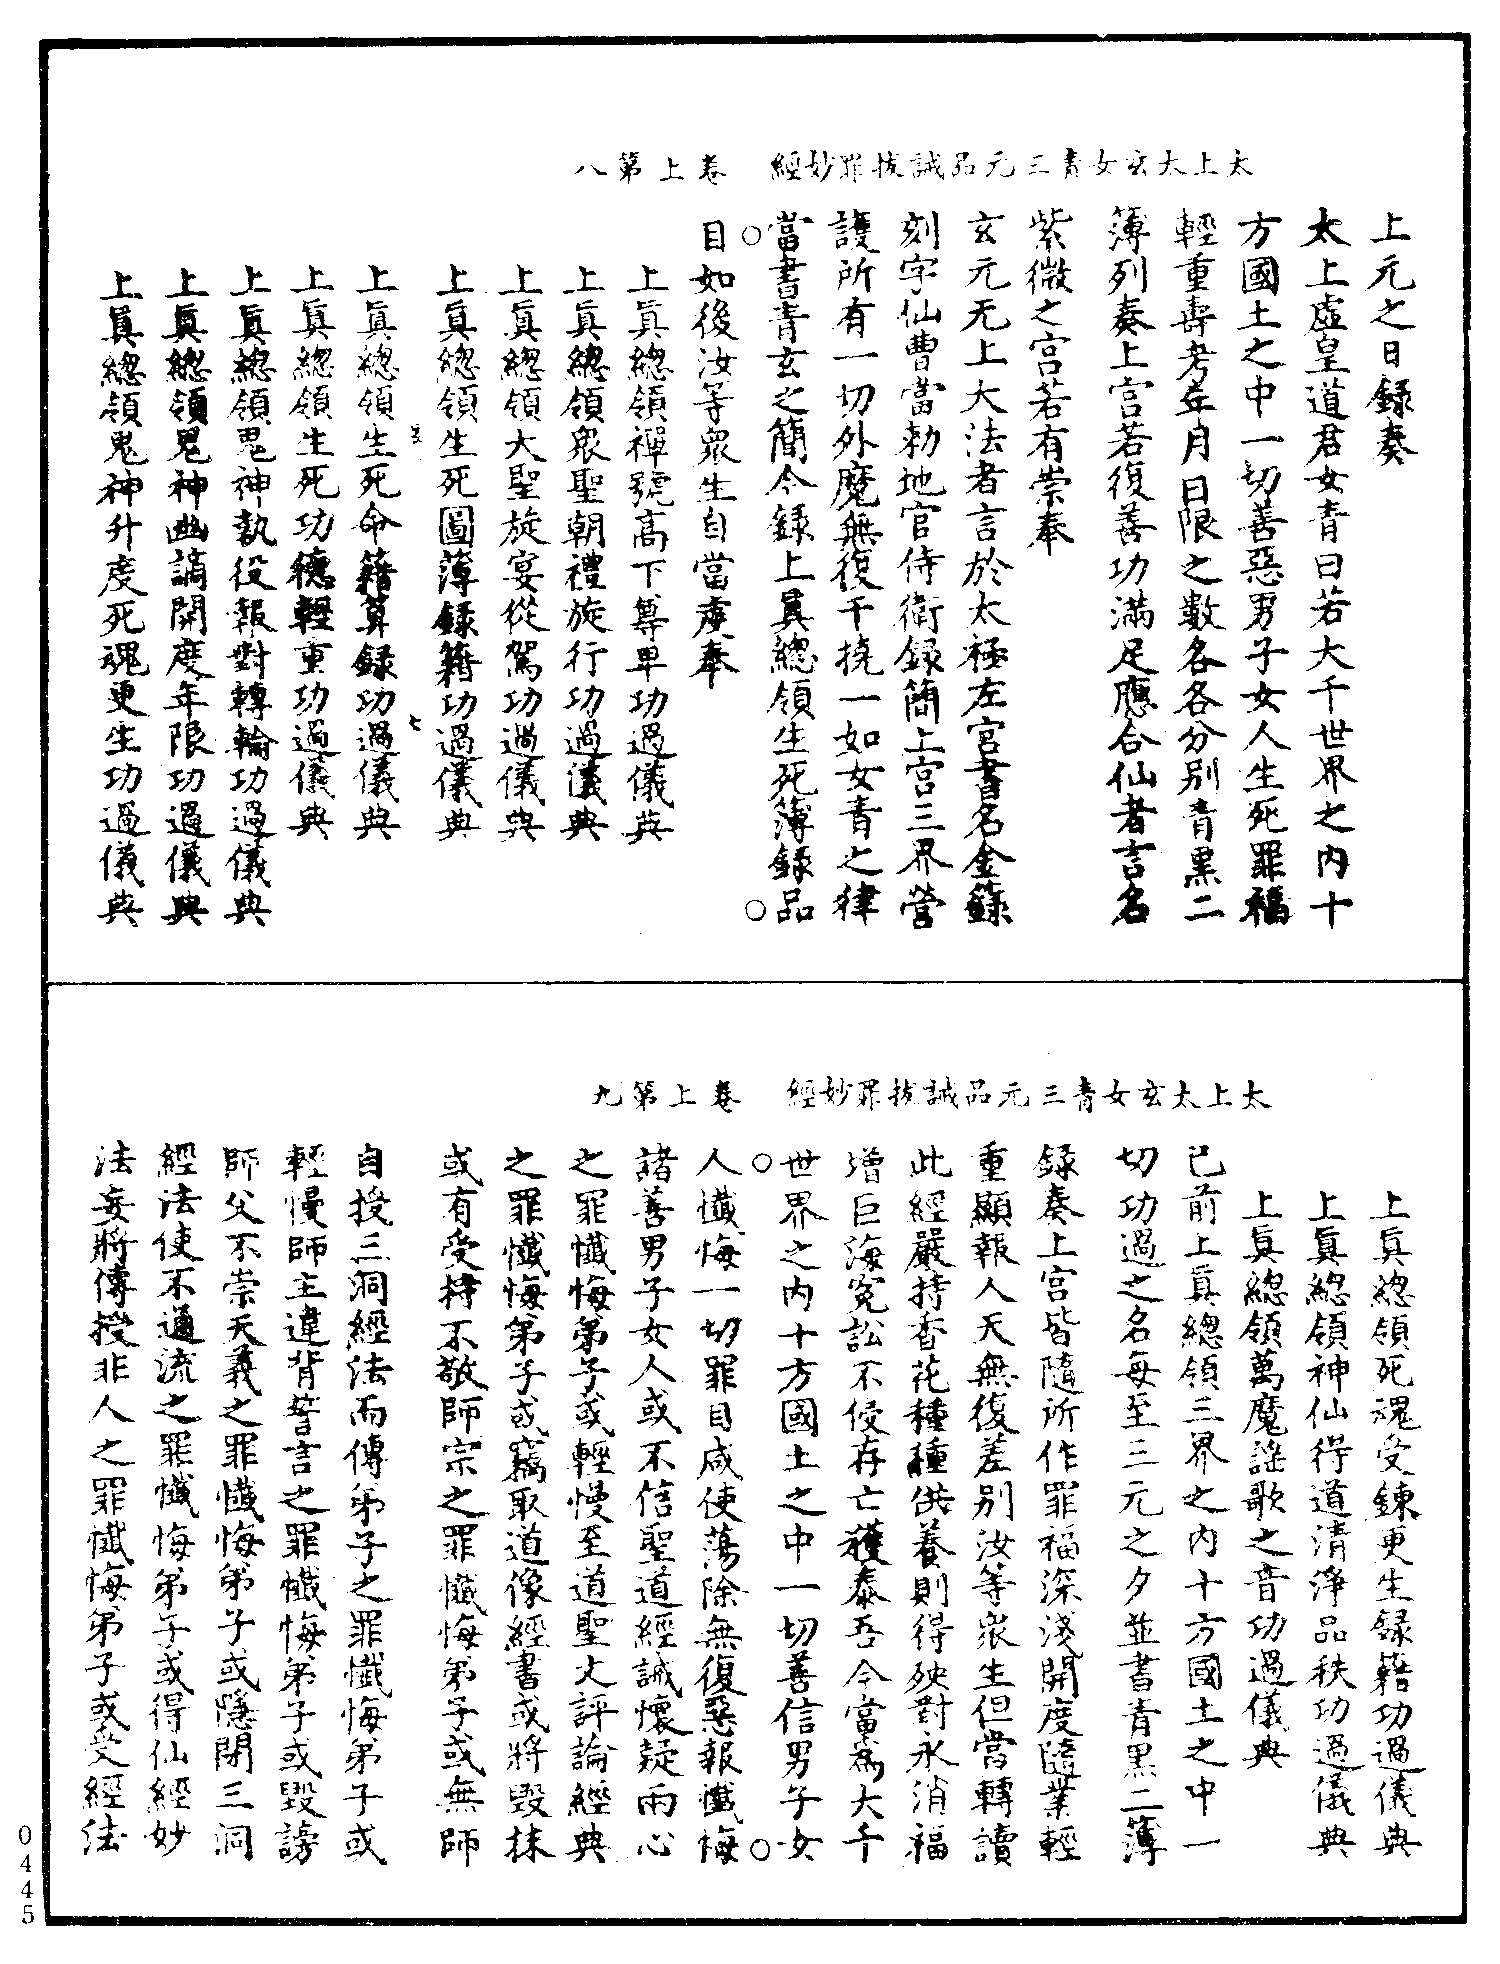 太上太玄女青三元品誡拔罪妙經　卷上第八
上元之日錄奏
太上虛皇道君女青曰若大千世界之內十
方國土之中一切善惡男子女人生死罪福
輕重壽考年月日限之數各各分別青黑二
簿列奏上宮若復善功滿足應合仙者言名
紫微之宮若有崇奉
玄元无上大法者言於太極左宮書名金籙
刻字仙曹當勑地官侍衛録簡上宮三界營
護所有一切外魔無復干撓一如女青之律
○當書青玄之簡今録上眞總領生死簿録品○
目如後汝等衆生自當虔奉
上眞總領禪號高下尊卑功過儀典
上眞總領衆聖朝禮旋行功過儀典
上眞總領大聖旋宴從駕功過儀典
上眞總領生死圖簿録籍功過儀典
上眞總領生死命籍算録功過儀典
上眞總領生死功德輕重功過儀典
上眞總領鬼神執役報對轉輪功過儀典
上眞總領鬼神幽謫開度年限功過儀典
上眞總領鬼神升度死魂更生功過儀典
太上太玄女青三元品誡拔罪妙經　卷上第九
上眞總領死魂受鍊更生録籍功過儀典
上眞總領神仙得道清淨品秩功過儀典
上眞總領萬魔謡歌之音功過儀典
已前上眞總領三界之內十方國土之中一
切功過之名每至三元之夕並書青黑二簿
録奏上宮皆隨所作罪福深淺開度隨業輕
重顯報人天無復差別汝等衆生但當轉讀
此經嚴持香花種種供養則得殃對永消福
增巨海冤訟不侵存亡獲泰吾今當爲大千
○世界之內十方國土之中一切善信男子女○
人懺悔一切罪目咸使蕩除無復惡報懺悔
諸善男子女人或不信聖道經誡懷疑兩心
之罪懺悔弟子或輕慢至道聖文評論經典
之罪懺悔弟子或竊取道像經書或將毀抹
或有受持不敬師宗之罪懺悔弟子或無師
自授三洞經法而傳弟子之罪懺悔弟子或
輕慢師主違背誓言之罪懺悔弟子或毀謗
師父不崇天義之罪懺悔弟子或隱閉三洞
經法使不通流之罪懺悔弟子或得仙經妙
法妄將傳授非人之罪懺悔弟子或受經法
0445